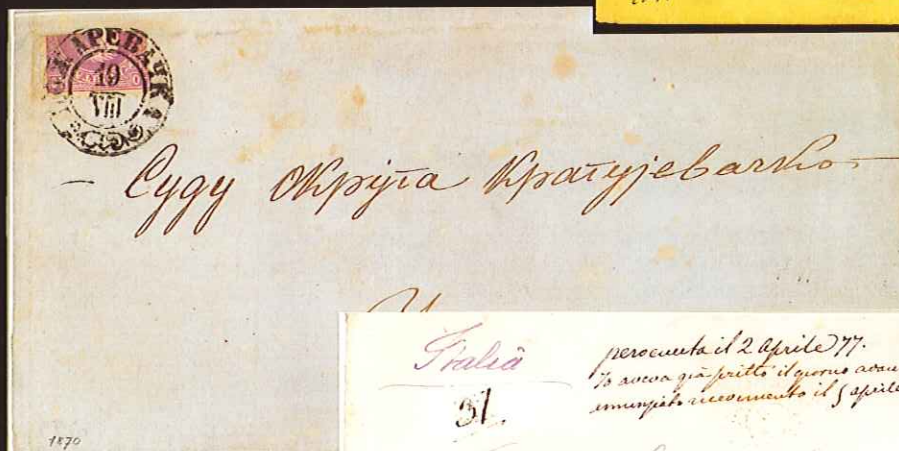 ПОЖАРЕВАЧКА
19
VIII
– Суду Округа Крагујевачко-
У
1870
Italia
31
pervenuta il 2 aprile 77.
Io aveva già scritto il giorno avan
ricevimento il 5 aprile